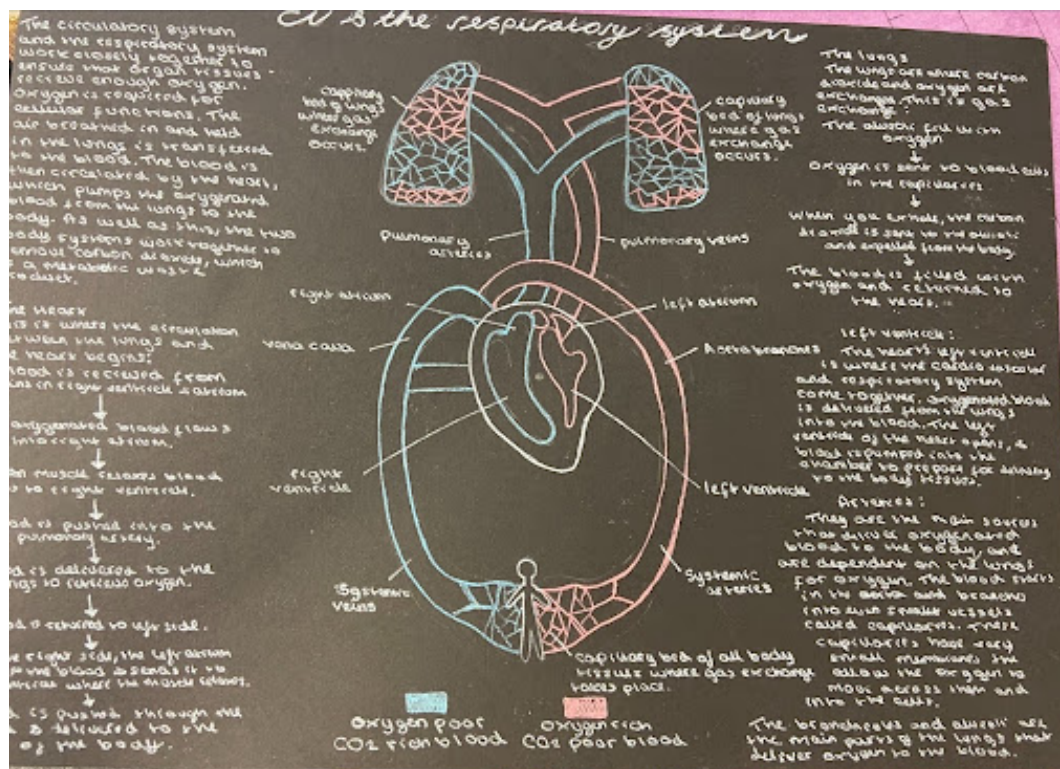 CV & the respiratory system
The circulatory system
and the respiratory system
work closely together to
ensure that organ tissues
recieve enough oxygen.
Oxygen is required for
cellular functions. The
air breathed in and held
in the lungs is transfered
to the blood. The blood is
then circulated by the heart,
which pumps the oxygenated
blood from the lungs to the
body. As well as this, the two
body systems work together to
remove carbon dioxide, which
a metabolic waste
product.
Heart
is where the circulation
between the lungs and
heart begins:
blood is recieved from
in right ventricle & atrium
oxygenated blood flows
into right atrium.
muscle relaxes blood
to right ventricle.
is pushed into the
pulmonary artery.
is delivered to the
to retrieve oxygen.
is returned to left side.
right side, the left atrium
the blood & sends it to
where the muscle
is pushed through the
& is delivered to the
of the body.
cappilary
bed of lungs
where gas
exchange
occurs.
capilary
bed of lungs
where gas
exchange
occurs.
pulmonary
arteries
pulmonary veins
right atrium
left atrium
vena cava
Aorta branches
right
ventricle
left ventricle
Systemic
veins
Systemic
arteries
capillary bed of all body
tissues where gas exchange
takes place.
Oxygen poor
CO2 rich blood
Oxygen rich
CO2 poor blood
The lungs
The lungs are where carbon
dioxide and oxygen are
exchanged. This is gas
exchange.
The alveoli fill with
oxygen
oxygen is sent to blood cells
in the capillaries
When you exhale, the carbon
dioxide is sent to the alveoli
and expelled from the body.
The blood is filled with
oxygen and returned to
the heart.
left ventricle:
The heart's left ventricle
is where the cardio vascular
and respiratory system
come together. oxygenated blood
is delivered from the lungs
into the blood. The left
ventricle of the heart opens, &
blood is pumped into the
chamber to prepare for delivery
to the body tissues.
Arteries:
They are the main sources
that deliver oxygenated
blood to the body, and
are dependent on the lungs
for oxygen. The blood starts
in the aorta and branches
into even smaller vessels
called capillaries. These
capillaries have very
small membranes the
allow the oxygen to
move across them and
into the cells.
The bronchioles and alveoli are
the main parts of the lungs that
deliver oxygen to the blood.